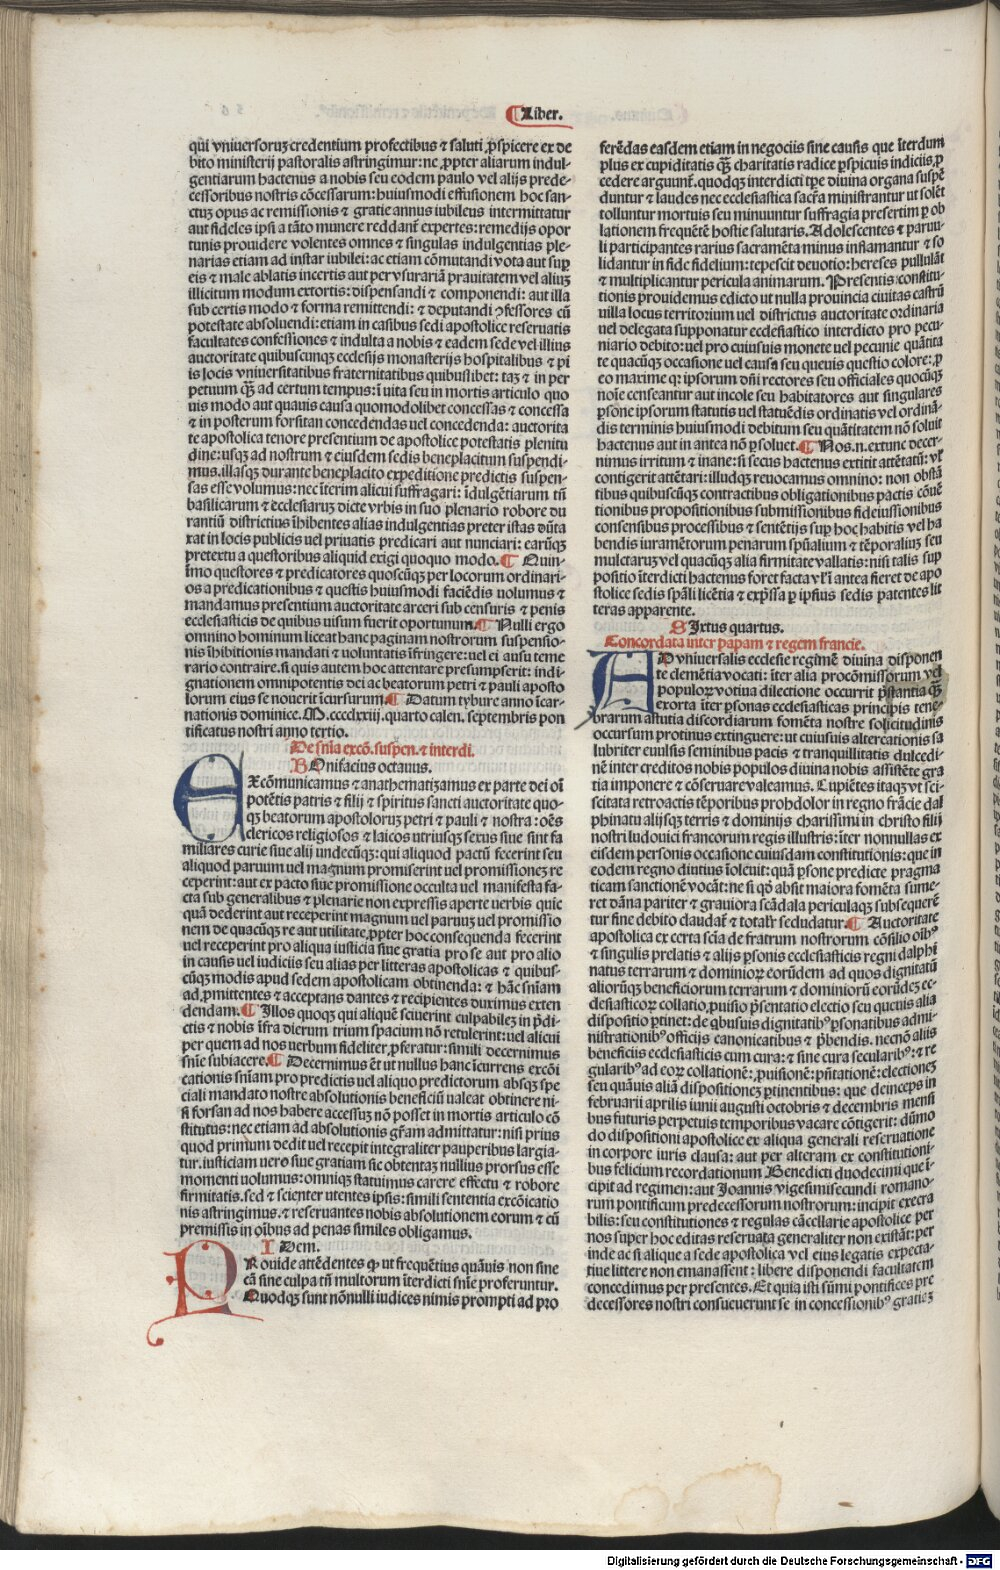 Liber.
qui vniuersoꝝ credentium profectibus ⁊ saluti ꝓspicere ex de
bito ministerij pastoralis astringimur: ne ꝓpter aliarum indul-
gentiarum hactenus a nobis seu eodem paulo vel alijs prede-
cessoribus nostris cōcessarum: huiusmodi effusionem hoc san-
ctuꝫ opus ac remissionis ⁊ gratie annus iubileus intermittatur
aut fideles ipsi a tāto munere reddant̄ expertes: remedijs opor
tunis prouidere volentes omnes ⁊ singulas indulgentias ple-
narias etiam ad instar iubilei: ac etiam cōmutandi vota aut suꝑ
eis ⁊ male ablatis incertis aut per vsurariā prauitatem vel aliuꝫ
illicitum modum extortis: dispensandi ⁊ componendi: aut illa
sub certis modo ⁊ forma remittendi: ⁊ deputandi ꝯfessores cū
potestate absoluendi: etiam in casibus sedi apostolice reseruatis
facultates confessiones ⁊ indulta a nobis ⁊ eadem sede vel illius
auctoritate quibuscunqꝫ ecclesijs monasterijs hospitalibus ⁊ pi
is locis vniuersitatibus fraternitatibus quibuslibet: taꝫ ⁊ in per
petuum qꝫ̄ ad certum tempus: ī uita seu in mortis articulo quo
uis modo aut quauis causa quomodolibet concessas ⁊ concessa
⁊ in posterum forsitan concedendas uel concedenda: auctorita
te apostolica tenore presentium de apostolice potestatis plenitu
dine: usqꝫ ad nostrum ⁊ eiusdem sedis beneplacitum suspendi-
mus. illasqꝫ durante beneplacito expeditione predictis suspen-
sas esse volumus: nec īterim alicui suffragari: īdulgētiarum tn̄
basilicarum ⁊ ecclesiaruꝫ dicte vrbis in suo plenario robore du
rantiū districtius īhibentes alias indulgentias preter istas dūta
xat in locis publicis uel priuatis predicari aut nunciari: earūqꝫ
pretextu a questoribus aliquid exigi quoquo modo. ¶ Quin-
īmo questores ⁊ predicatores quoscūqꝫ per locorum ordinari-
os a predicationibus ⁊ questis huiusmodi faciēdis uolumus ⁊
mandamus presentium auctoritate arceri sub censuris ⁊ penis
ecclesiasticis de quibus uisum fuerit oportunum. ¶ Nulli ergo
omnino hominum liceat hanc paginam nostrorum suspensio-
nis īhibitionis mandati ⁊ uoluntatis īfringere: uel ei ausu teme
rario contraire. si quis autem hoc attentare presumpserit: indi-
gnationem omnipotentis dei ac beatorum petri ⁊ pauli aposto
lorum eius se nouerit īcursurum. ¶ Datum tybure anno īcar-
nationis dominice. M.cccclxxiij. quarto calen. septembris pon
tificatus nostri anno tertio.
De snīa excō. suspen. ⁊ interdi.
BOnifacius octauus.
EXcōmunicamus ⁊ anathematizamus ex parte dei oī
potētis patris ⁊ filij ⁊ spiritus sancti auctoritate quo-
qꝫ beatorum apostoloruꝫ petri ⁊ pauli ⁊ nostra: oēs
clericos religiosos ⁊ laicos utriusqꝫ sexus siue sint fa
miliares curie siue alij undecūqꝫ: qui aliquod pactū fecerint seu
aliquod paruum uel magnum promiserint uel promissioneꝫ re
ceperint: aut ex pacto siue promissione occulta uel manifesta fa-
cta sub generalibus ⁊ plenarie non expressis aperte uerbis quic
quā dederint aut receperint magnum uel paruuꝫ uel promissio
nem de quacūqꝫ re aut utilitate, ꝓpter hoc consequenda fecerint
uel receperint pro aliqua iusticia siue gratia pro se aut pro alio
in causis uel iudiciis seu alias per litteras apostolicas ⁊ quibus-
cūqꝫ modis apud sedem apostolicam obtinenda: ⁊ hāc snīam
ad, ꝓmittentes ⁊ acceptans dantes ⁊ recipientes duximus exten
dendam. ¶ Illos quoqꝫ qui aliquē sciuerint culpabileꝫ in p̄di-
ctis ⁊ nobis īfra dierum trium spacium nō retulerint: uel alicui
per quem ad nos uerbum fideliter ꝓferatur: simili decernimus
snīe subiacere. ¶ Decernimus ēt ut nullus hanc īcurrens excōi
cationis snīam pro predictis uel aliquo predictorum absqꝫ spe
ciali mandato nostre absolutionis beneficiū ualeat obtinere ni-
si forsan ad nos habere accessuꝫ nō posset in mortis articulo cō
stitutus: nec etiam ad absolutionis gr̄am admittatur: nisi prius
quod primum dedit uel recepit integraliter pauperibus largia-
tur. iusticiam uero siue gratiam sic obtentaꝫ nullius prorsus esse
momenti uolumus: omniqꝫ statuimus carere effectu ⁊ robore
firmitatis. sed ⁊ scienter utentes ipsis: simili sententia excōicatio
nis astringimus. ⁊ reseruantes nobis absolutionem eorum ⁊ cū
premissis in oībus ad penas similes obligamus.
IDem.
PRouide attēdentes ꝙ ut frequētius quāuis non sine
cā sine culpa tn̄ multorum īterdicti snīe proferuntur.
Quodqꝫ sunt nōnulli iudices nimis prompti ad pro
ferēdas easdem etiam in negociis sine causis que īterdum
plus ex cupiditatis qꝫ̄ charitatis radice ꝑspicuis indiciis ꝓ
cedere arguunt̄. quodqꝫ interdicti tpe diuina organa suspē
duntur ⁊ laudes nec ecclesiastica sacr̄a ministrantur ut solēt
tolluntur mortuis seu minuuntur suffragia presertim ꝑ ob
lationem frequētē hostie salutaris. Adolescentes ⁊ paruu-
li participantes rarius sacramēta minus inflamantur ⁊ so
lidantur in fide fidelium: tepescit deuotio: hereses pullulāt
⁊ multiplicantur pericula animarum. Presentis constitu-
tionis prouidemus edicto ut nulla prouincia ciuitas castrū
uilla locus territorium uel districtus auctoritate ordinaria
uel delegata supponatur ecclesiastico interdicto pro pecu-
niario debito: uel pro cuiusuis monete uel pecunie quātita
te quacūqꝫ occasione uel causa seu queuis questio colore: ꝓ
eo maxime qꝛ ipsorum dn̄i rectores seu officiales quocūqꝫ
noīe censeantur aut incole seu habitatores aut singulares
ꝑsōne ipsorum statutis uel statuēdis ordinatis vel ordinā-
dis terminis huiusmodi debitum seu quātitatem nō soluit
hactenus aut in antea nō ꝑsoluet. ¶ Nos.n.extunc decer-
nimus irritum ⁊ inane: si secus hactenus extitit attētatū: vl̄
contigerit attētari: illudqꝫ reuocamus omnino: non obstā
tibus quibuscūqꝫ contractibus obligationibus pactis cōuē
tionibus propositionibus submissionibus fideiussionibus
consensibus processibus ⁊ sentētijs suꝑ hoc habitis vel ha
bendis iuramētorum penarum spūalium ⁊ tēporaliuꝫ seu
mulctaruꝫ vel quacūqꝫ alia firmitate vallatis: nisi talis sup
positio īterdicti hactenus foret facta vl̄ ī antea fieret de apo
stolice sedis spāli licētia ⁊ exp̄ssa ꝑ ipsius sedis patentes lit
teras apparente.
SIxtus quartus.
Concordata inter papam ⁊ regem francie.
AD vniuersalis ecclesie regimē diuina disponen
te clemētia vocati: īter alia procōmissorum vel
populoꝝ votiua dilectione occurrit p̄stantia qꝫ̄
exorta īter ꝑsonas ecclesiasticas principis tene-
brarum astutia discordiarum fomēta nostre solicitudinis
occursum protinus extinguere: ut cuiusuis altercationis sa
lubriter euulsis seminibus pacis ⁊ tranquillitatis dulcedi-
nē inter creditos nobis populos diuina nobis assistēte gra
tia imponere ⁊ cōseruare valeamus. Cupiētes itaqꝫ vt sci-
scitata retroactis tēporibus prohdolor in regno frācie dal
phinatu alijsqꝫ terris ⁊ dominijs charissimi in christo filij
nostri ludouici francorum regis illustris: īter nonnullas ex
eisdem personis occasione cuiusdam constitutionis: que in
eodem regno diutius īoleuit: quā ꝑsone predicte pragma
ticam sanctionē vocāt: ne si qd̄ absit maiora fomēta sume-
ret dāna pariter ⁊ grauiora scādala periculaqꝫ subsequerē
tur fine debito claudat̄ ⁊ total̄r sedudatur. ¶ Auctoritate
apostolica ex certa scīa de fratrum nostrorum cōsilio oībꝰ
⁊ singulis prelatis ⁊ alijs ꝑsonis ecclesiasticis regni dalphi
natus terrarum ⁊ dominioꝝ eorūdem ad quos dignitatū
aliorūqꝫ beneficiorum terrarum ⁊ dominiorū eorūdeꝫ ec-
clesiasticoꝝ collatio, ꝓuisio p̄sentatio electio seu queuis alia
dispositio ꝑtinet: de qbusuis dignitatibꝰ ꝑsonatibus admi-
nistrationibꝰ officijs canonicatibus ⁊ p̄bendis. necnō aliis
beneficiis ecclesiasticis cum cura: ⁊ sine cura secularibꝰ: ⁊ re
gularibꝰ ad eoꝝ collationē: ꝓuisionē: pn̄tationē: electionē
seu quāuis aliā dispositioneꝫ ꝑtinentibus: que deinceps in
februarii aprilis iunii augusti octobris ⁊ decembris mensi
bus futuris perpetuis temporibus vacare cōtigerit: dūmo
do dispositioni apostolice ex aliqua generali reseruatione
in corpore iuris clausa: aut per alteram ex constitutioni-
bus felicium recordationum Benedicti duodecimi que ī-
cipit ad regimen: aut Joannis vigesimisecundi romano-
rum pontificum predecessorum nostrorum: incipit execra
bilis: seu constitutiones ⁊ regulas cācellarie apostolice per
nos super hoc editas reseruata generaliter non existāt: per
inde ac si alique a sede apostolica vel eius legatis expecta-
tiue littere non emanassent: libere disponendi facultatem
concedimus per presentes. Et quia isti sūmi pōtifices pre
decessores nostri consueuerunt se in concessionibꝰ gratieꝫ
Digitalisierung gefördert durch die Deutsche Forschungsgemeinschaft - DFG